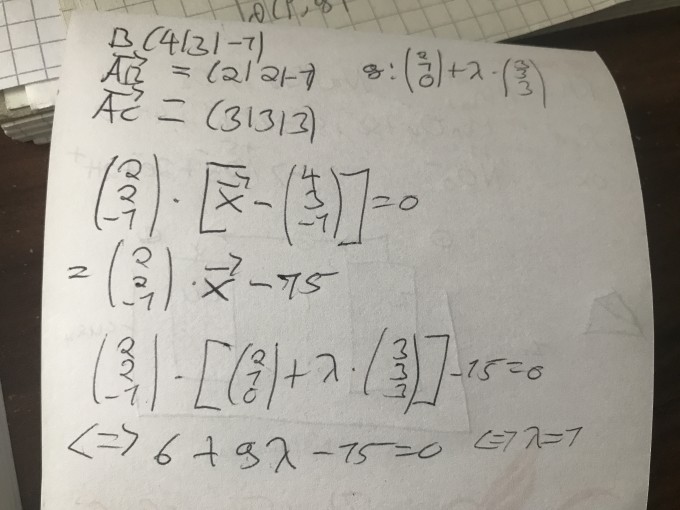 B (4|3|-1)
AB = (2|2|-1) g: (2 1 0) + λ · (3 3 3)
AC = (3|3|3)
(2 2 -1) · [x - (4 3 -1)] = 0
= (2 2 -1) · x - 15
(2 2 -1) · [(2 1 0) + λ · (3 3 3)] - 15 = 0
<=> 6 + 9λ - 15 = 0 <=> λ = 1